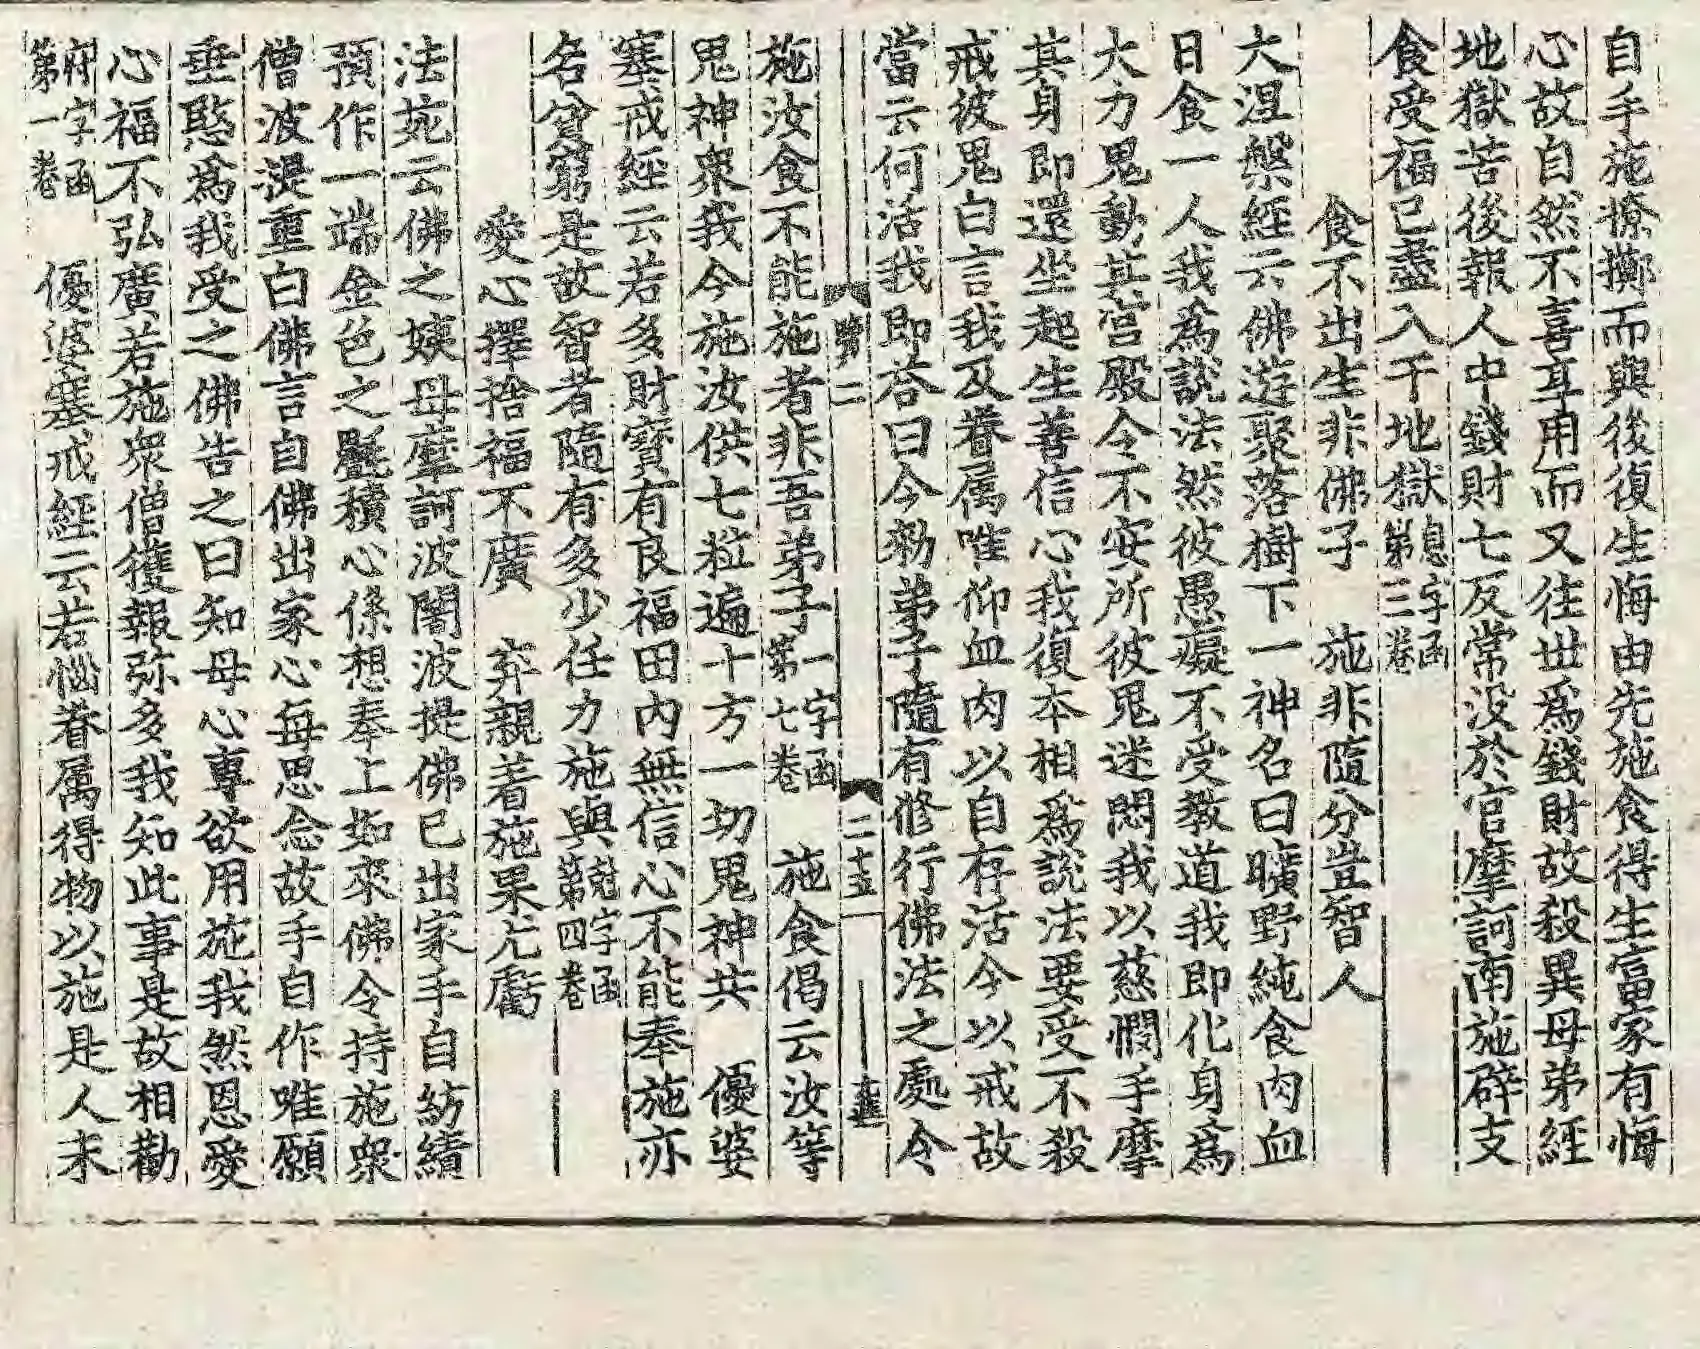 自手施撩擲而與後復生悔由先施食得生冨家有悔
心故自然不喜耳用而又徃世爲錢財故殺異母弟經
地獄苦後報人中錢財七反常没於官摩訶南施辟支
食受福已盡入千地獄息字函第三卷
食不出生非佛子　施非隨分豈智人
大涅槃經云佛遊聚落樹下一神名曰曠野純食肉血
日食一人我為説法然彼愚癡不受教道我即化身爲
大力鬼動其宮殿令不安所彼鬼迷悶我以慈憫手摩
其身即還坐起生善信心我復本相爲説法要受不殺
戒彼鬼白言我及眷属唯仰血肉以自存活今以戒故
當云何活我即荅曰今勑弟子隨有修行佛法之處令
二　二十五
施汝食不能施者非吾弟子一字函第七卷　施食偈云汝等
鬼神衆我今施汝供七粒遍十方一切鬼神共　優婆
塞戒經云若多財寶有良福田内無信心不能奉施亦
名貧窮是故智者隨有多少任力施與字函第四卷
愛心擇捨福不廣　弃親着施果尤虧
法苑云佛之姨母摩訶波闍波提佛已出家手自紡績
預作一端金色之㲲積心係想奉上如來佛令持施衆
僧波提重白佛言自佛出家心每思念故手自作唯願
垂愍爲我受之佛告之曰知母心專欲用施我然恩愛
心福不弘廣若施衆僧獲報弥多我知此事是故相勸
府字函第一卷　優婆塞戒經云若惱眷属得物以施是人未